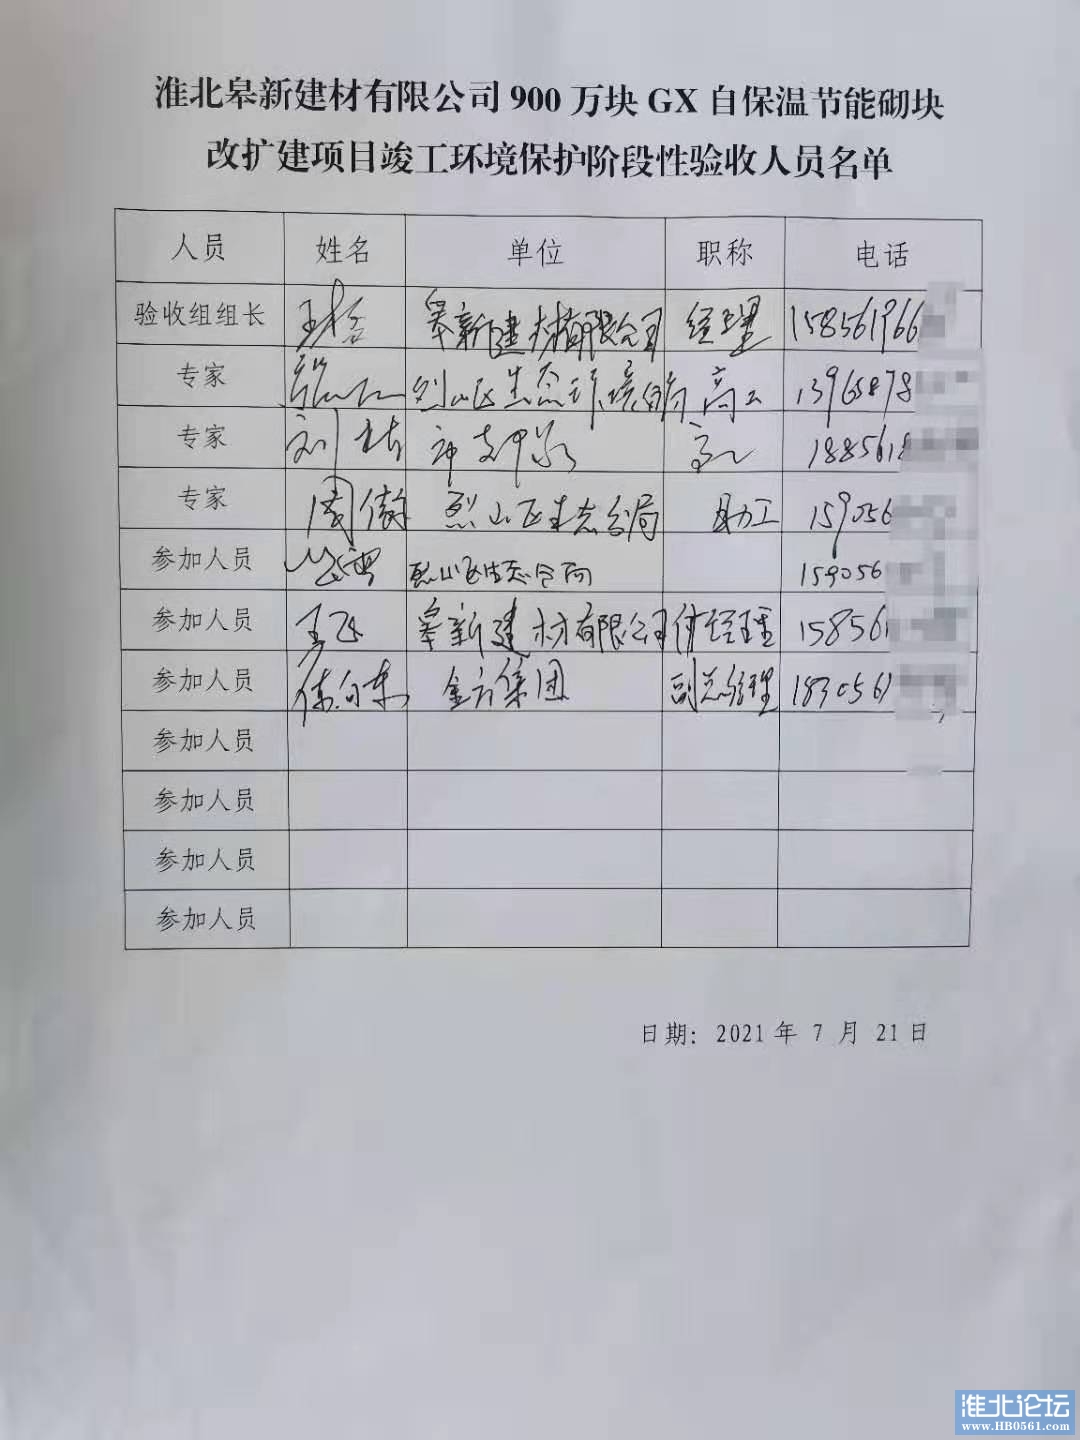 淮北皋新建材有限公司 900 万块 GX 自保温节能砌块
改扩建项目竣工环境保护阶段性验收人员名单
人员 姓名 单位 职称 电话
验收组组长 皋新建材有限公司 经理 158561966
专家 烈山区生态环境分局 高工 13965878
专家 刘 高工 1885618
专家 周 烈山区生态分局 助工 159056
参加人员 烈山区生态分局 159056
参加人员 王飞 皋新建材有限公司 付经理 158561
参加人员 集团 副总经理 1830561
参加人员
参加人员
参加人员
参加人员
日期: 2021 年 7 月 21 日
淮北论坛
www.HB0561.com